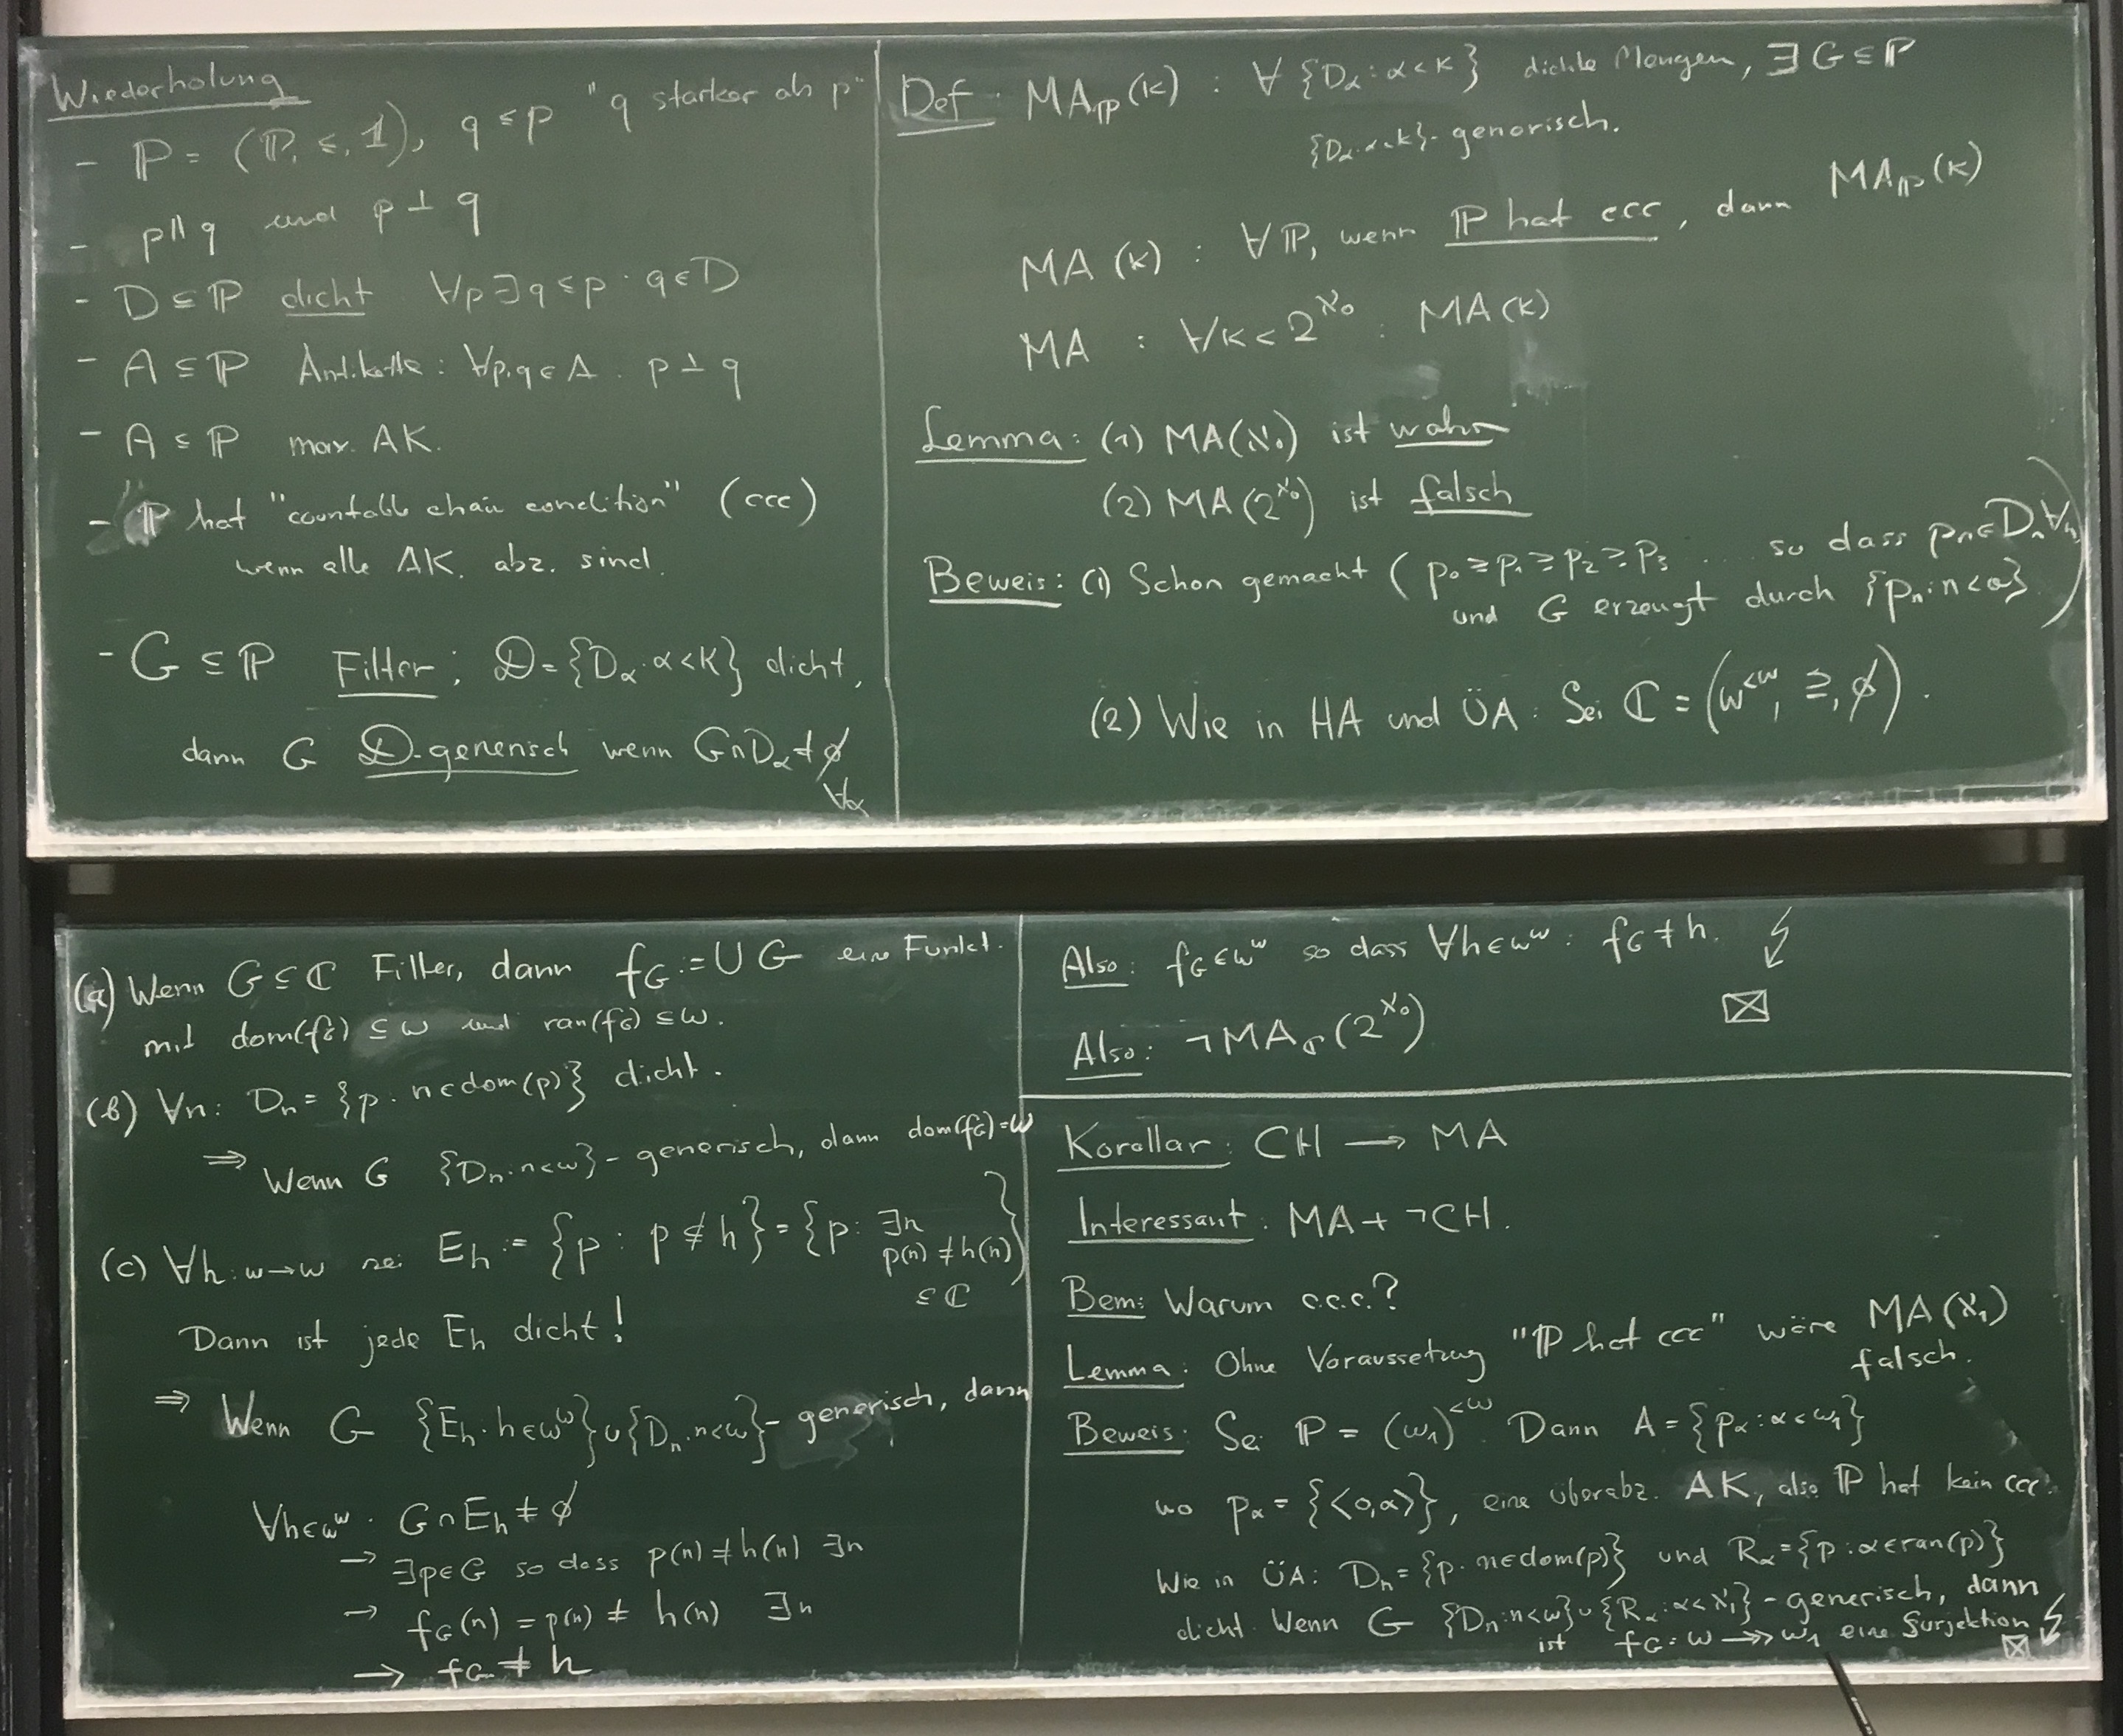 Wiederholung
- ℙ = (ℙ, ≤, 𝟙), q ≤ p "q starker als p"
- p∥q und p ⊥ q
- D ⊆ ℙ dicht ∀p ∃q ≤ p : q ∈ D
- A ⊆ ℙ Antikette : ∀p,q ∈ A . p ⊥ q
- A ⊆ ℙ max. AK.
- ℙ hat "countable chain condition" (ccc)
wenn alle AK. abz. sind.
- G ⊆ ℙ Filter ; 𝒟 = {D_α : α < κ} dicht,
dann G 𝒟-generisch wenn G ∩ D_α ≠ ∅
∀α
Def : MA_ℙ(κ) : ∀ {D_α : α < κ} dichte Mengen, ∃ G ⊆ ℙ
{D_α : α < κ}-generisch.
MA (κ) : ∀ℙ, wenn ℙ hat ccc, dann MA_ℙ(κ)
MA : ∀κ < 2^ℵ₀ : MA(κ)
Lemma : (1) MA(ℵ₀) ist wahr
(2) MA(2^ℵ₀) ist falsch
Beweis : (1) Schon gemacht ( p₀ ≥ p₁ ≥ p₂ ≥ p₃ .... so dass p_n ∈ D_n ∀n
und G erzeugt durch {p_n : n < ω} )
(2) Wie in HA und ÜA : Sei ℂ = (ω^{<ω}, ⊇, ∅) .
(a) Wenn G ⊆ ℂ Filter, dann f_G := ∪ G eine Funkt.
mit dom(f_G) ⊆ ω und ran(f_G) ⊆ ω.
(b) ∀n : D_n = {p : n ∈ dom(p)} dicht .
⇒ Wenn G {D_n : n < ω} - generisch, dann dom(f_G) = ω
(c) ∀h : ω → ω sei E_h := {p : p ⊄ h} = {p : ∃n
p(n) ≠ h(n)}
⊆ ℂ
Dann ist jede E_h dicht !
⇒ Wenn G {E_h : h ∈ ω^ω} ∪ {D_n : n < ω} - generisch, dann
∀h ∈ ω^ω : G ∩ E_h ≠ ∅
→ ∃p ∈ G so dass p(n) ≠ h(n) ∃n
→ f_G(n) = p(n) ≠ h(n) ∃n
→ f_G ≠ h
Also : f_G ∈ ω^ω so dass ∀h ∈ ω^ω : f_G ≠ h. ↯
Also : ¬MA_ℂ(2^ℵ₀) ⊠
Korollar : CH → MA
Interessant : MA + ¬CH.
Bem : Warum c.c.c.?
Lemma : Ohne Voraussetzung "ℙ hat ccc" wäre MA(ℵ₁)
falsch.
Beweis : Sei ℙ = (ω₁)^{<ω} Dann A = {p_α : α < ω₁}
wo p_α = {<0,α>}, eine überabz. AK, also ℙ hat kein ccc.
Wie in ÜA : D_n = {p : n ∈ dom(p)} und R_α = {p : α ∈ ran(p)}
dicht. Wenn G {D_n : n < ω} ∪ {R_α : α < ℵ₁} - generisch, dann
ist f_G : ω ↠ ω₁ eine Surjektion ↯ ⊠